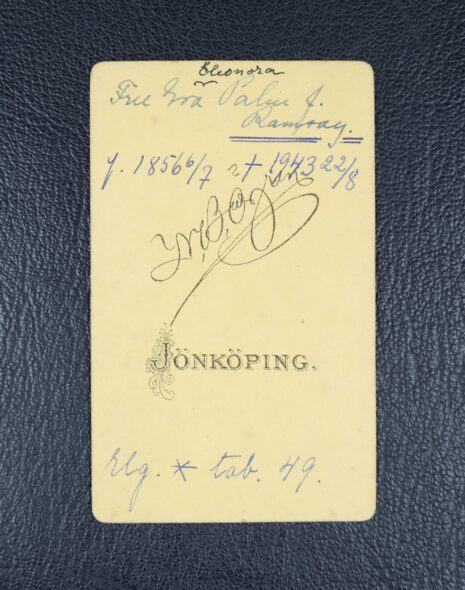 Eleonora
Fru Eva Palin f.
Ramsay.
f. 1856 6/7 † 1943 22/8
JÖNKÖPING.
Elg. * tab. 49.